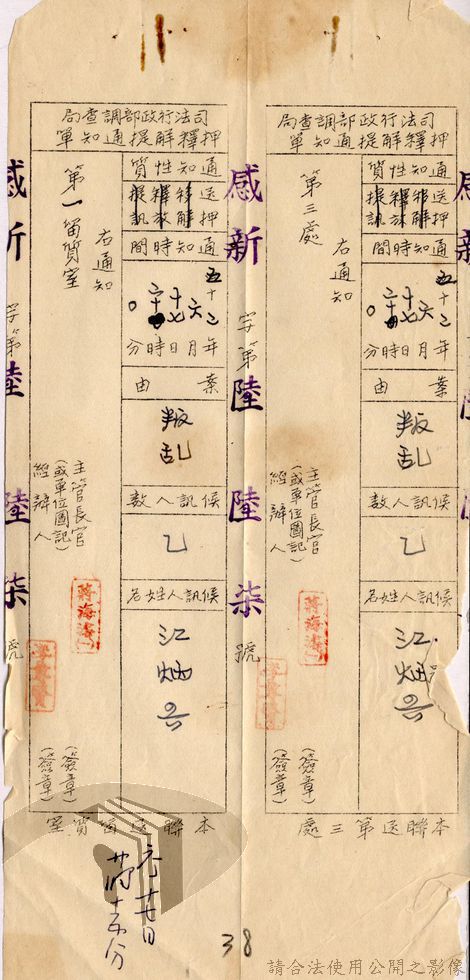 司法行政部調查局
押釋解提通知單
通知性質
送押
移解
釋放
提訊
通知時間
五十二年
六月
十七日
時
分
案由
叛乱
候訊人數
乙
候訊人姓名
江炳興
右通知
第三處
主管長官
(或單位圖記)
經辦人
(簽章)
(簽章)
本聯送第三處
感新字第陸陸柒號
司法行政部調查局
押釋解提通知單
通知性質
送押
移解
釋放
提訊
通知時間
五十二年
六月
十七日
時
分
案由
叛乱
候訊人數
乙
候訊人姓名
江炳興
右通知
第一留質室
主管長官
(或單位圖記)
經辦人
蔣海溶
(簽章)
(簽章)
本聯送留質室
感新字第陸陸柒號
38
請合法使用公開之影像